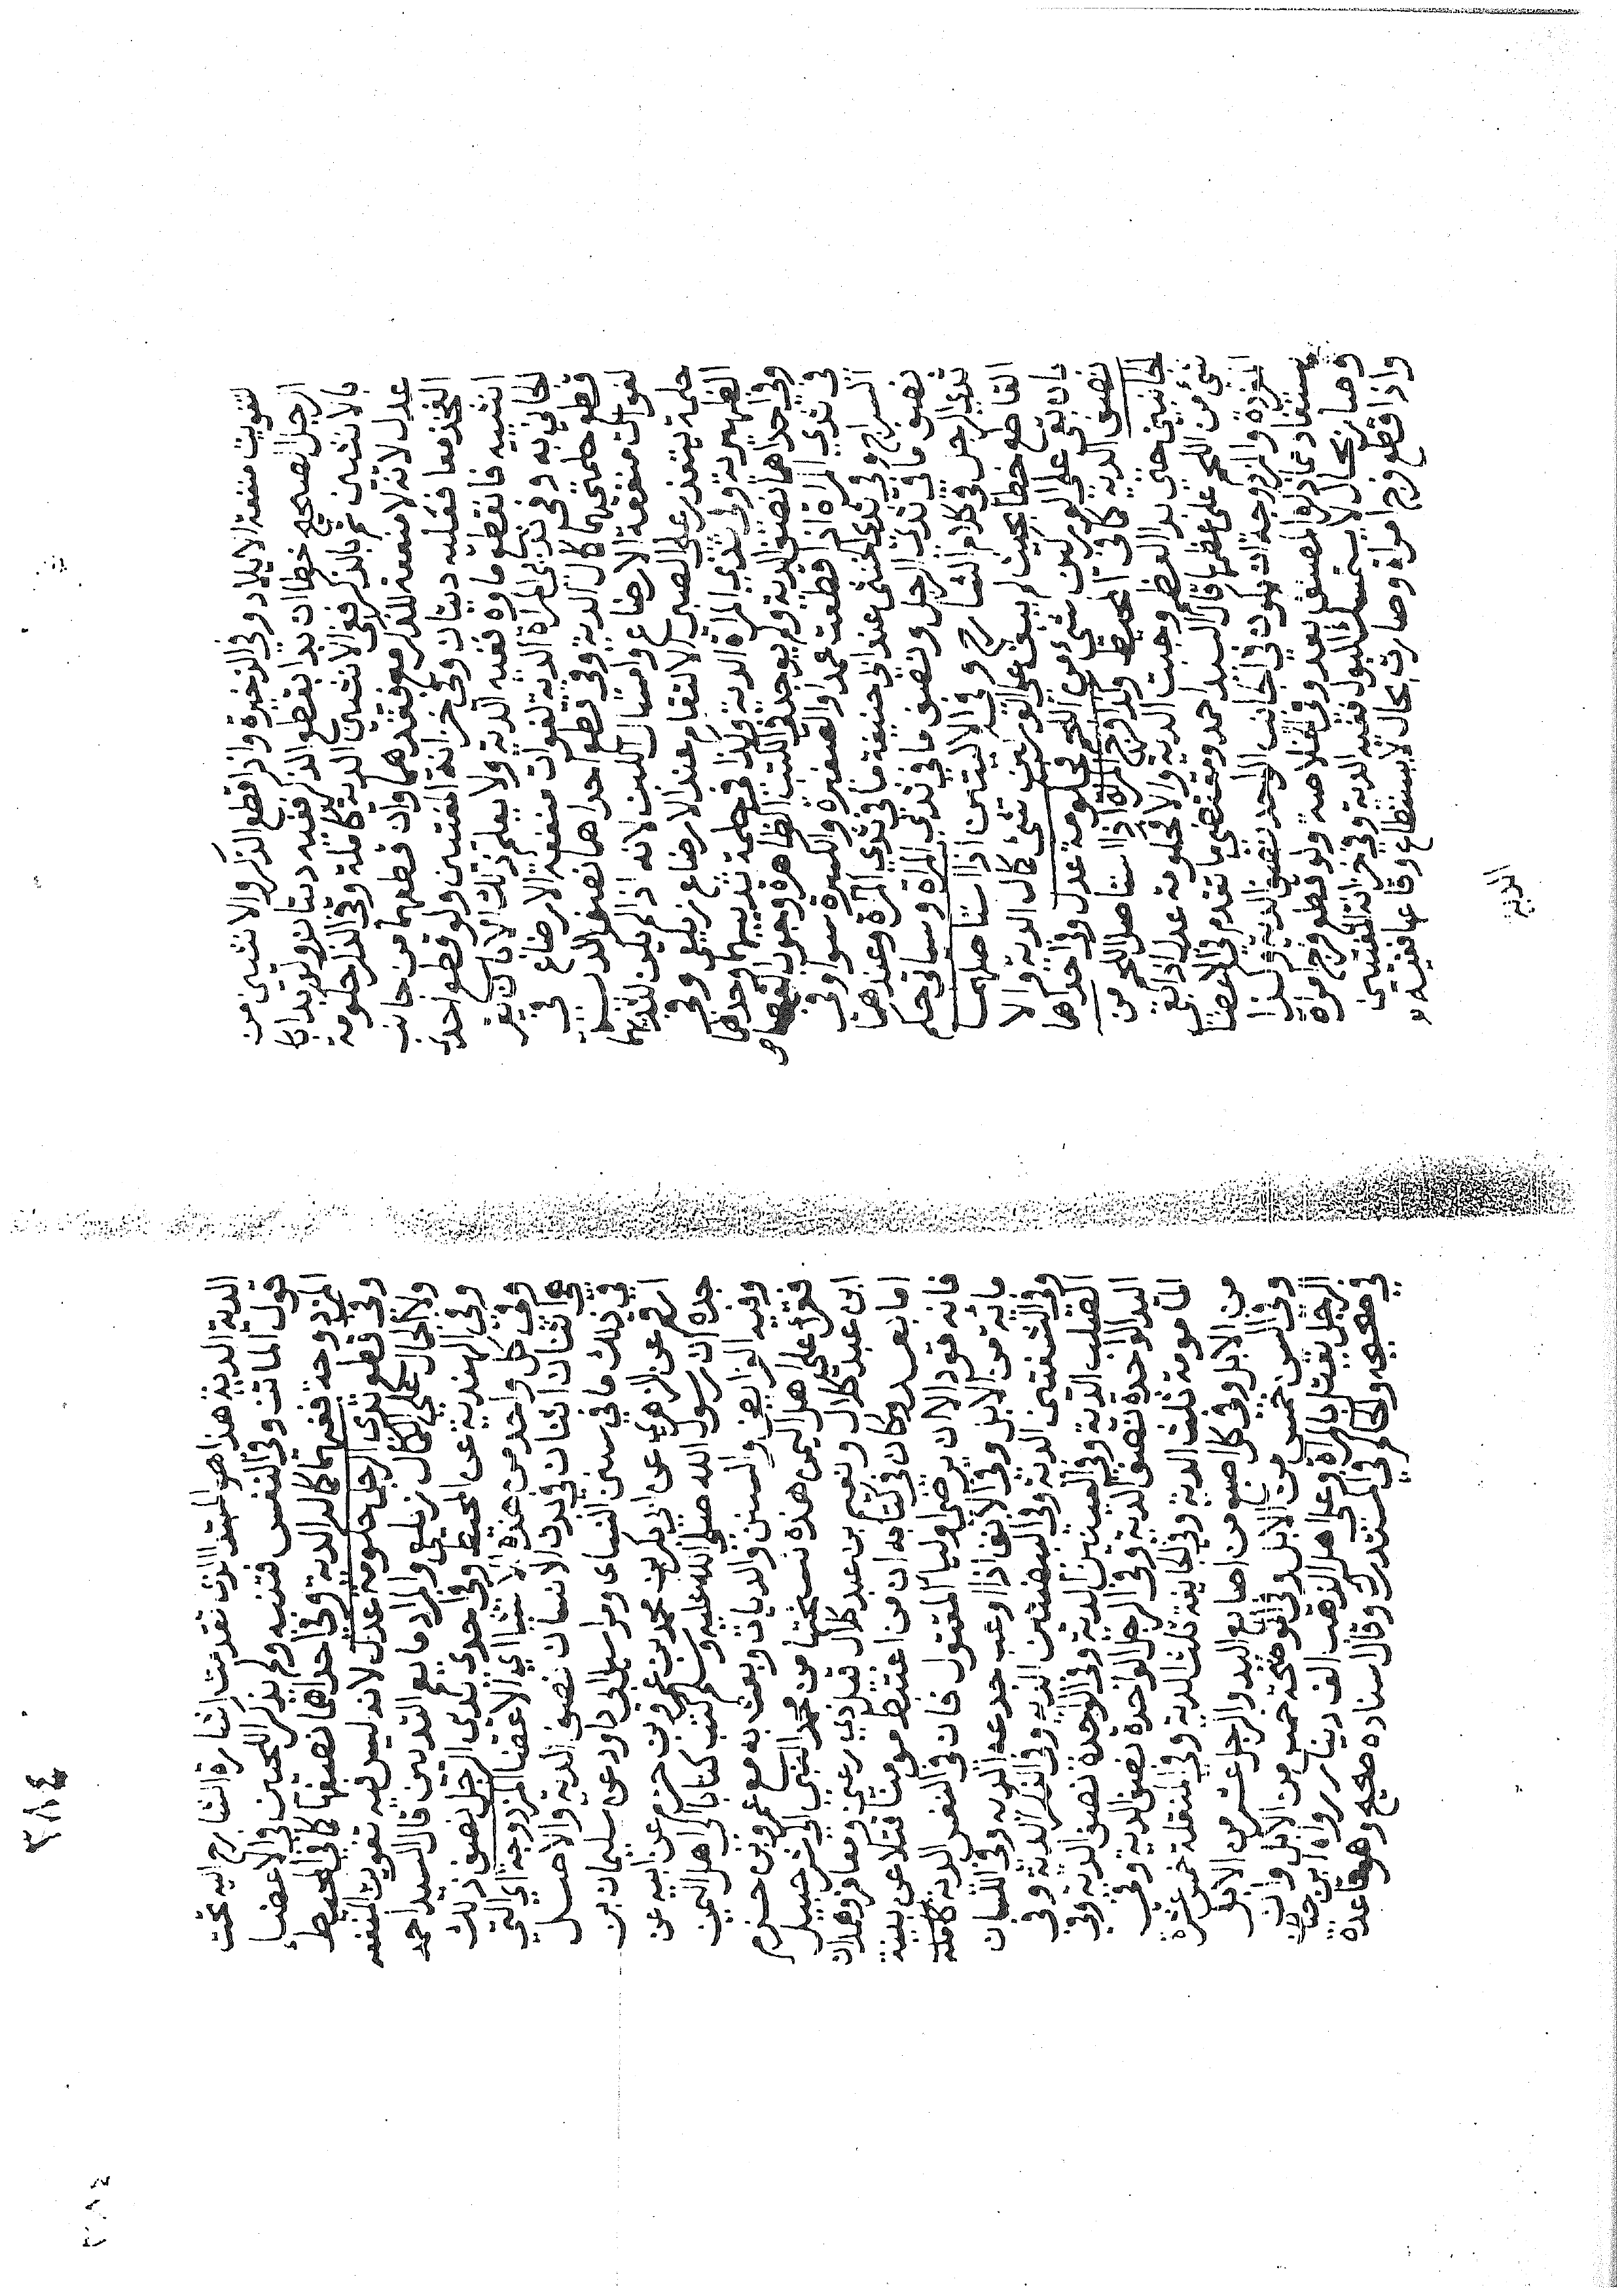 لتفويت منفعة الايلاد وفي الذخيرة واذا قطع الذكر والانثيين من
الرجل الصحيح خطا ان بدا بقطع الذكر ففيه ديتان ولو بدا
بالانثيين ثم بالذكر ففي الانثيين الدية كاملة وفي الذكر حكومة
عدل لانه لا منفعة للذكر مع فقدهما وان قطعهما من جانب
الفخذ معا فعليه ديتان وفي خزانة المفتيين ولو قطع احدى
انثييه فانقطع ماوه ففيه الدية ولا يعلم ذلك الا بان يقر
الجاني به وفي ثديي المراة الدية لفوات منفعة الارضاع في
قطع حلمتيهما كمال الدية وفي قطع احداهما نصف الدية
لفوات منفعة الارضاع وامساك اللبن لانه اذا لم يكن لثديها
حلمة يتعذر على الصبي الالتقام عند الارضاع زيلعي وفي
الظهيرية وفي ثديي المراة الدية وكذا في حلمة ثدييها وحدهما
وفي احداهما نصف الدية ولم يوجد في الكتب الظاهرة وجوب القصاص
في ثدي المراة اذا قطعت عمدا والصغيرة والكبيرة سوا وفي
السراج وفي ثدي الخنثى عند ابي حنيفة ما في ثدي المراة وعندهما
نصف ما في ثدي الرجل ونصف ما في ثدي المراة وسياتي حكم
ثدي الرجل في كلام الشارح وفي الاليتين اذا استاصلهما
القاطع خطا بحيث لم يبق على الوركين شئ كمال الدية والا
بان بقي على الوركين شئ من اللحم فحكومة عدل وفي احداهما
نصف الدية كما في المحيط وكذا فرج المراة اذا استاصل اللحم من
الجانبين حتى بدا العظم وجبت الدية والا فحكومة عدل اذا بقي
شئ من اللحم على عظمها قال السيد احمد ومقتضى ما تقدم في الاعضا
المفردة والمزدوجة ان يكون في الجانب الواحد نصف الدية وكذا
يستفاد مما ذكره المصنف بعد وفي الخلاصة ولو قطع فرج امراة
وصار بحال لا يستمسك البول ففيه الدية وفي خزانة المفتيين
واذا قطع فرج امراة وصارت بحال لا يستطاع وقاعها ففيه
الدية
٣٨٤
الدية الدية هذا هو المتقدمت اشارة الشارح اليه تحت
قول الماتن وفي النفس فتنبه ولم يذكر اللحيين في الاعضا
المزدوجة ففيهما كمال الدية وفي احداهما نصفها كما في المحيط
وفي قطع ثدي الرجل حكومة عدل لانه ليس فيه تفويت المنفعة
ولا الجمال على الكمال زيلعي والمراد ما يعم الثديين قال السيد احمد
وفي الهندية عن المحيط وفي احدى ثدي الرجل نصف ذلك
وفي كل واحد من هذه الاشيا اي الاعضا المزدوجة اي التي
هي اثنان اثنان في بدن الانسان نصف الدية والاصل
في ذلك ما في سنن النساى ومراسيل ابي داود عن سليمان بن
ارقم عن الزهري عن ابي بكر بن محمد بن عمرو بن حزم عن ابيه عن
جده ان رسول الله صلى الله عليه وسلم كتب كتابا الى اهل اليمن
وفيه الفرايض والسنن والديات وبعث به مع عمرو بن حزم
فقرا على اهل اليمن هذه نسختها من محمد النبي الى شرحبيل
ابن عبد كلال ونعيم بن عبد كلال قيل ذي رعين ومعافر وهمدان
اما بعد وكان في كتابه ان من اعتبط مومنا قتلا عن بينة
فانه قود الا ان يرضى اوليا المقتول فان في النفس الدية كاملة
مائة من الابل وفي الانف اذا اوعب جدعه الدية وفي اللسان
وفي الشفتين الدية وفي البيضتين الدية وفي الذكر الدية وفي
الصلب الدية وفي العينين الدية وفي الواحدة نصف الدية وفي
اليد الواحدة نصف الدية وفي الرجل الواحدة نصف الدية وفي
المامومة ثلث الدية وفي الجايفة ثلث الدية وفي المنقلة خمس عشرة
من الابل وفي كل اصبع من اصابع اليد والرجل عشر من الابل
وفي السن خمس من الابل وفي الموضحة خمس من الابل وان
الرجل يقتل بالمراة وعلى اهل الذهب الف دينار رواه ابن حبان
في صحيحه والحاكم في المستدرك وقال اسناده صحيح وهو قاعدة